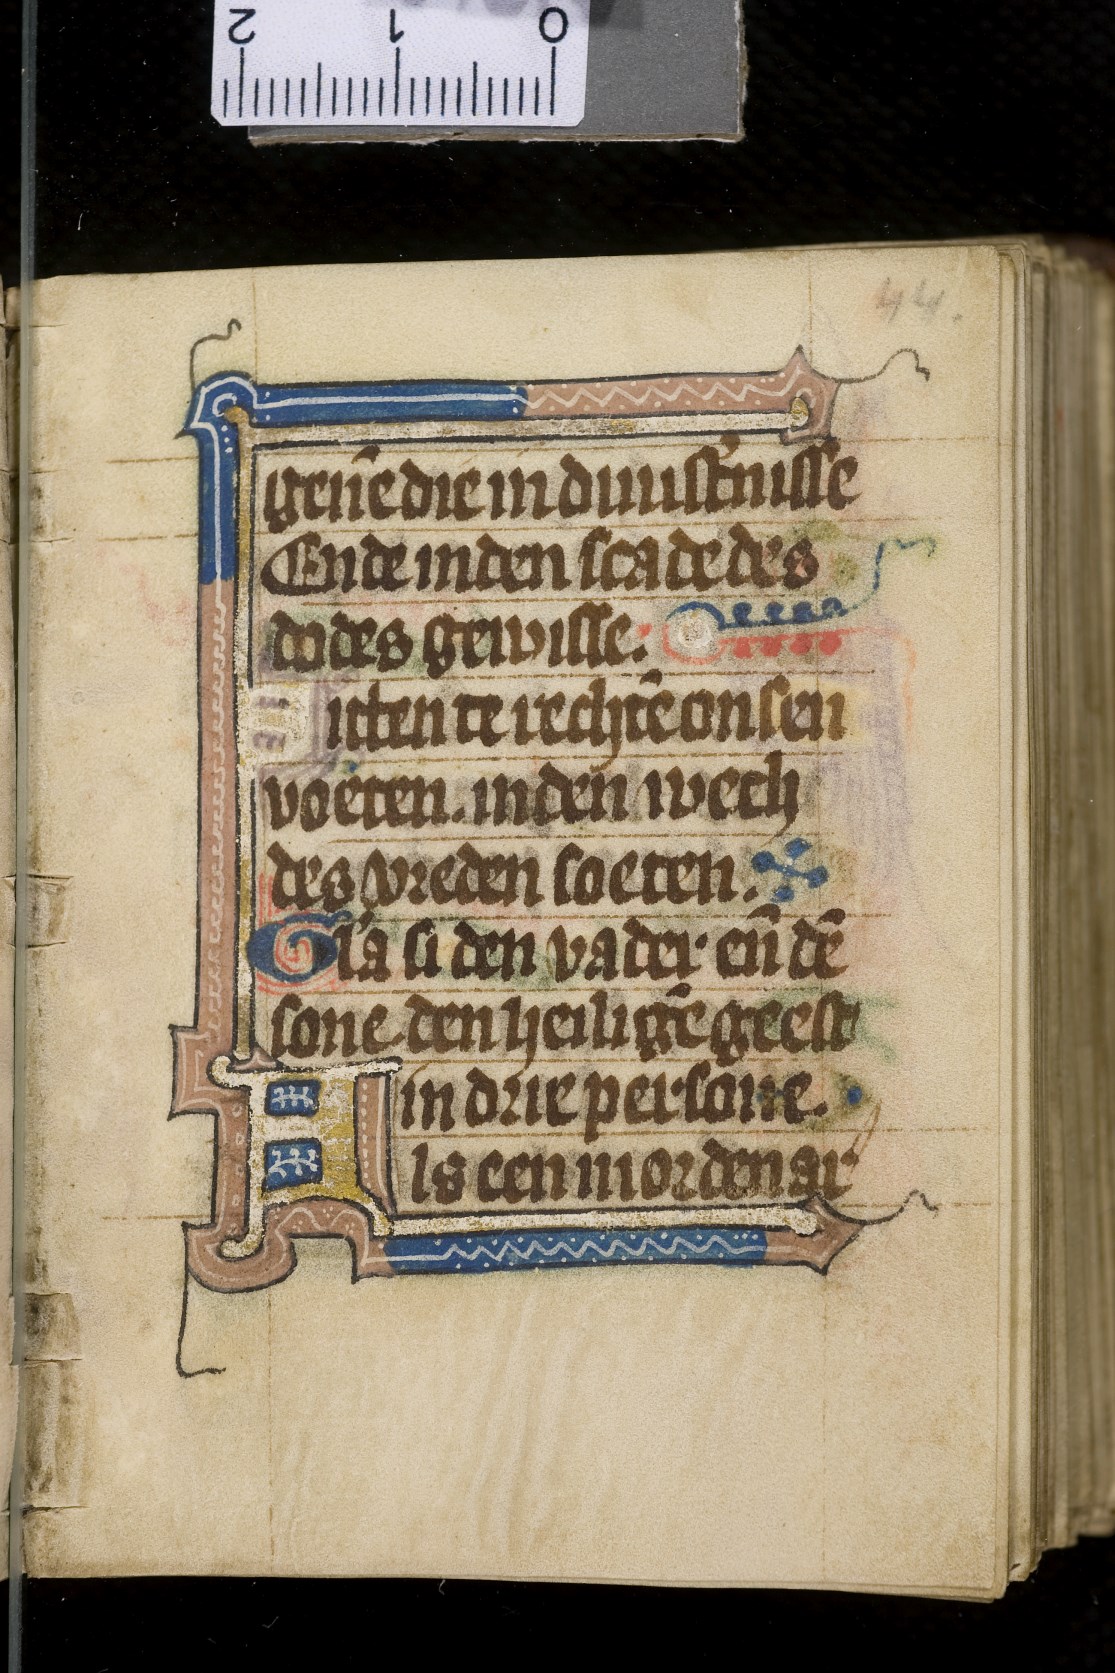 2 1 0
44.
geñe die in duust̄nisse
Ende in den scade des
dodes gewisse.
icten te rechtē onsen
voeten. in den wech
des vreden soeten.
Gl'a si den vader eñ dē
sone den heiligē geest
in drie persone.
Als een mordenar